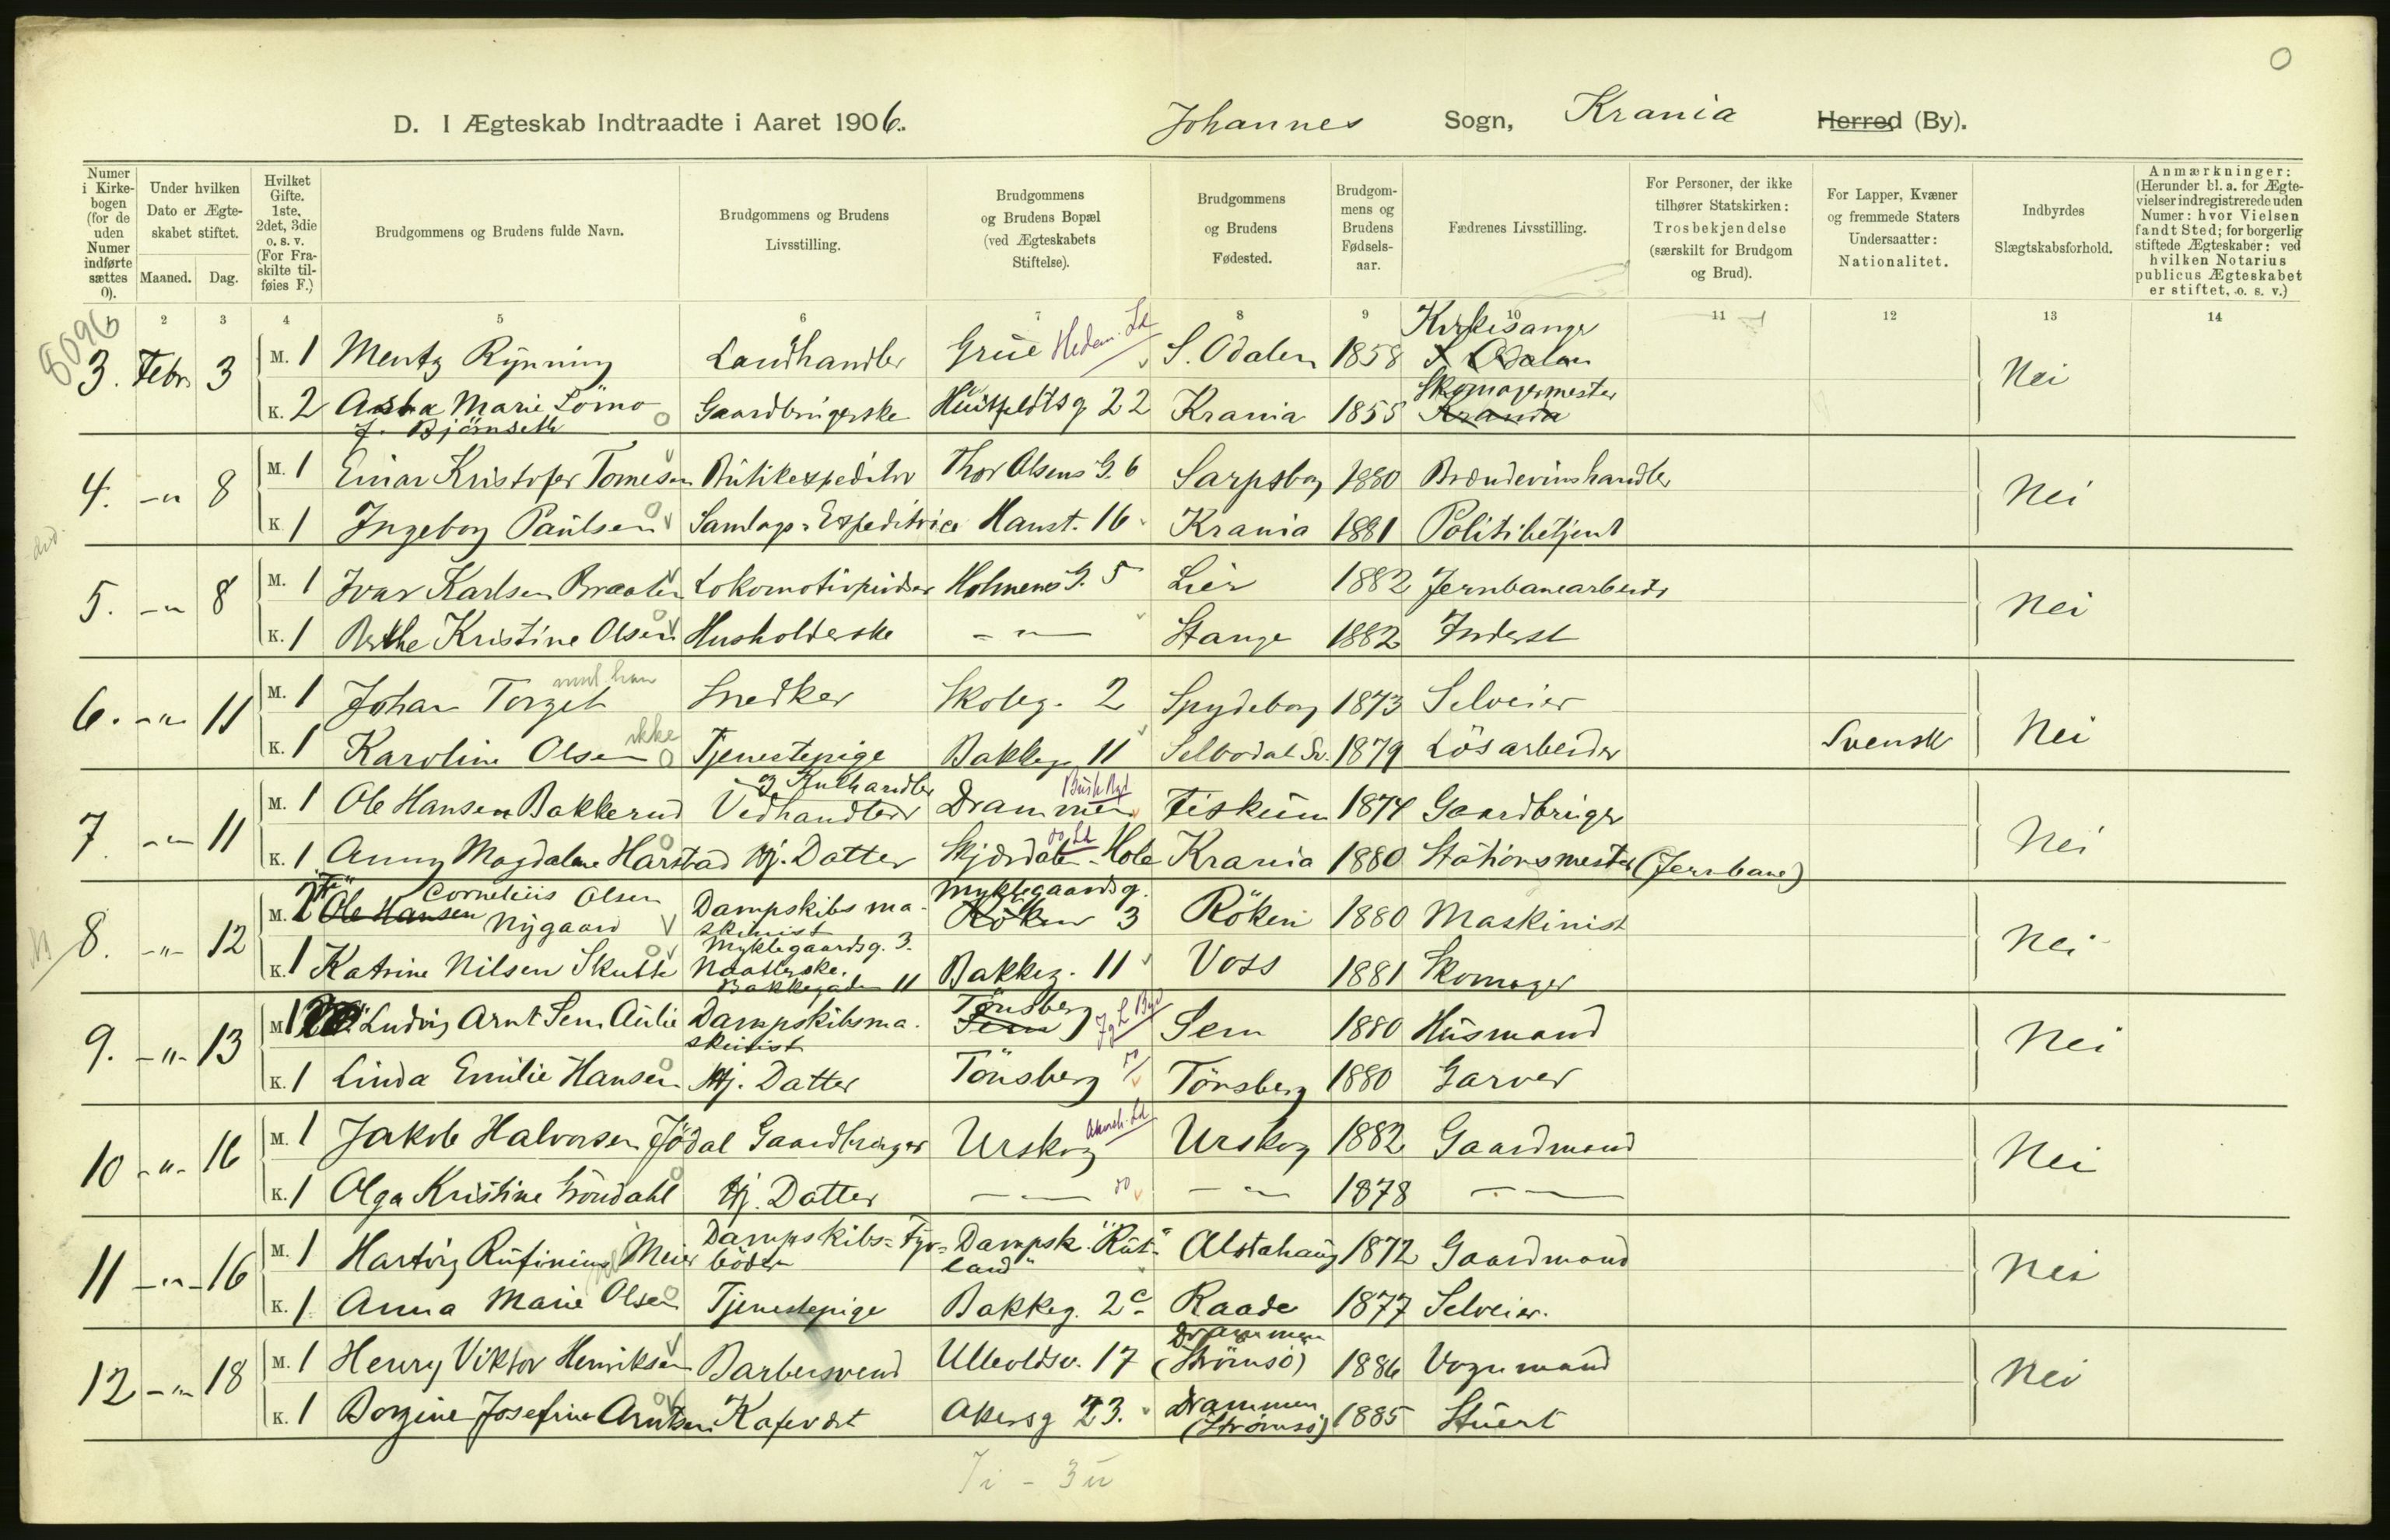 0
D. I Ægteskab Indtraadte i Aaret 1906. Johannes Sogn, Krania Herred (By).
Numer i Kirkebogen (for de uden Numer indførte sættes 0).
Under hvilken Dato er Ægteskabet stiftet. Maaned. Dag.
Hvilket Gifte. 1ste, 2det, 3die o. s. v. (For Fraskilte tilføies F.)
Brudgommens og Brudens fulde Navn.
Brudgommens og Brudens Livsstilling.
Brudgommens og Brudens Bopæl (ved Ægteskabets Stiftelse).
Brudgommens og Brudens Fødested.
Brudgommens og Brudens Fødselsaar.
Fædrenes Livsstilling.
For Personer, der ikke tilhører Statskirken: Trosbekjendelse (særskilt for Brudgom og Brud).
For Lapper, Kvæner og fremmede Staters Undersaatter: Nationalitet.
Indbyrdes Slægtskabsforhold.
Anmærkninger: (Herunder bl. a. for Ægtevielser indregistrerede uden Numer: hvor Vielsen fandt Sted; for borgerlig stiftede Ægteskaber: ved hvilken Notarius publicus Ægteskabet er stiftet, o. s. v.)
2 3 4 5 6 7 8 9 10 11 12 13 14
3. Febr. 3 M. 1 Mentz Rynning Landhandler Grue Hedem. Ld S. Odalen 1858 Kirkesanger S. Odalen Nei
K. 2 Anna Marie Lömo f. Björnseth Gaardbrugerske Huitfeldtsg 22 Krania 1855 Skomagermester Krania
4. -"- 8 M. 1 Einar Kristofer Tomesen Butikexpeditör Thor Olsens G. 6 Sarpsborg 1880 Brændevinshandler Nei
K 1 Ingeborg Paulsen Samlags-Expeditrice Hanst. 16 Krania 1881 Politibetjent
5. -"- 8 M. 1 Ivar Karlsen Braaten Lokomotivpudser Holmens G. 5 Lier 1882 Jernbanearbeider Nei
K. 1 Berthe Kristine Olsen Husholderske -"- Stange 1882 Inderst
6. -"- 11 M. 1 Johan Torget Snedker Skoleg. 2 Spydeberg 1873 Selveier Nei
K. 1 Karoline Olsen ikke Tjenestepige Bakkeg. 11 Selbodal Sv. 1879 Lösarbeider Svensk
7. -"- 11 M. 1 Ole Hansen Bakkerud Vedhandler g Kulhandler Drammen Busk Byd Fiskum 1874 Gaardbruger Nei
K. 1 Anny Magdalene Harstad Hj. Datter Skjærdalen Hole Krania 1880 Stationsmester (Jernbane)
8. -"- 12 M. Ole Hansen Cornelius Olsen Nygaard Dampskibsmaskinist Myklegaardsg. Röken 3 Röken 1880 Maskinist Nei
K. 1 Katrine Nilsen Skutle Myklegaardsg. 3. Naatlerske. Bakkegaden 11 Bakkeg. 11 Voss 1881 Skomager
9. -"- 13 M 1 Ludvig Arnt Sem Aulie Dampskibsmaskinist Tönsberg Sem Sem 1880 Husmand Nei
K. 1 Linda Emilie Hansen Hj. Datter Tönsberg Tönsberg 1880 Garver
10 -"- 16 M. 1 Jakob Halvorsen Jödal Gaardbruger Urskog Akersh. Ld Urskog 1882 Gaardmand Nei
K. 1 Olga Kristine Gröndahl Hj. Datter -"- -"- 1878 -"-
11 -"- 16 M. 1 Hartvig Rufinius Meier Dampskibs-Fyrböder Dampsk. "Rutland" Alstahaug 1872 Gaardmand Nei
K. 1 Anna Marie Olsen Tjenestepige Bakkeg. 2c Raade 1877 Selveier.
12 -"- 18 M. 1 Henry Viktor Henriksen Barbersvend Ullevoldsv. 17 Drammen (Strömsö) 1886 Vognmand Nei
K. 1 Borgine Josefine Arntsen Kafevært Akersg 23. Drammen (Strömsö) 1885 Stuert
7i - 3u